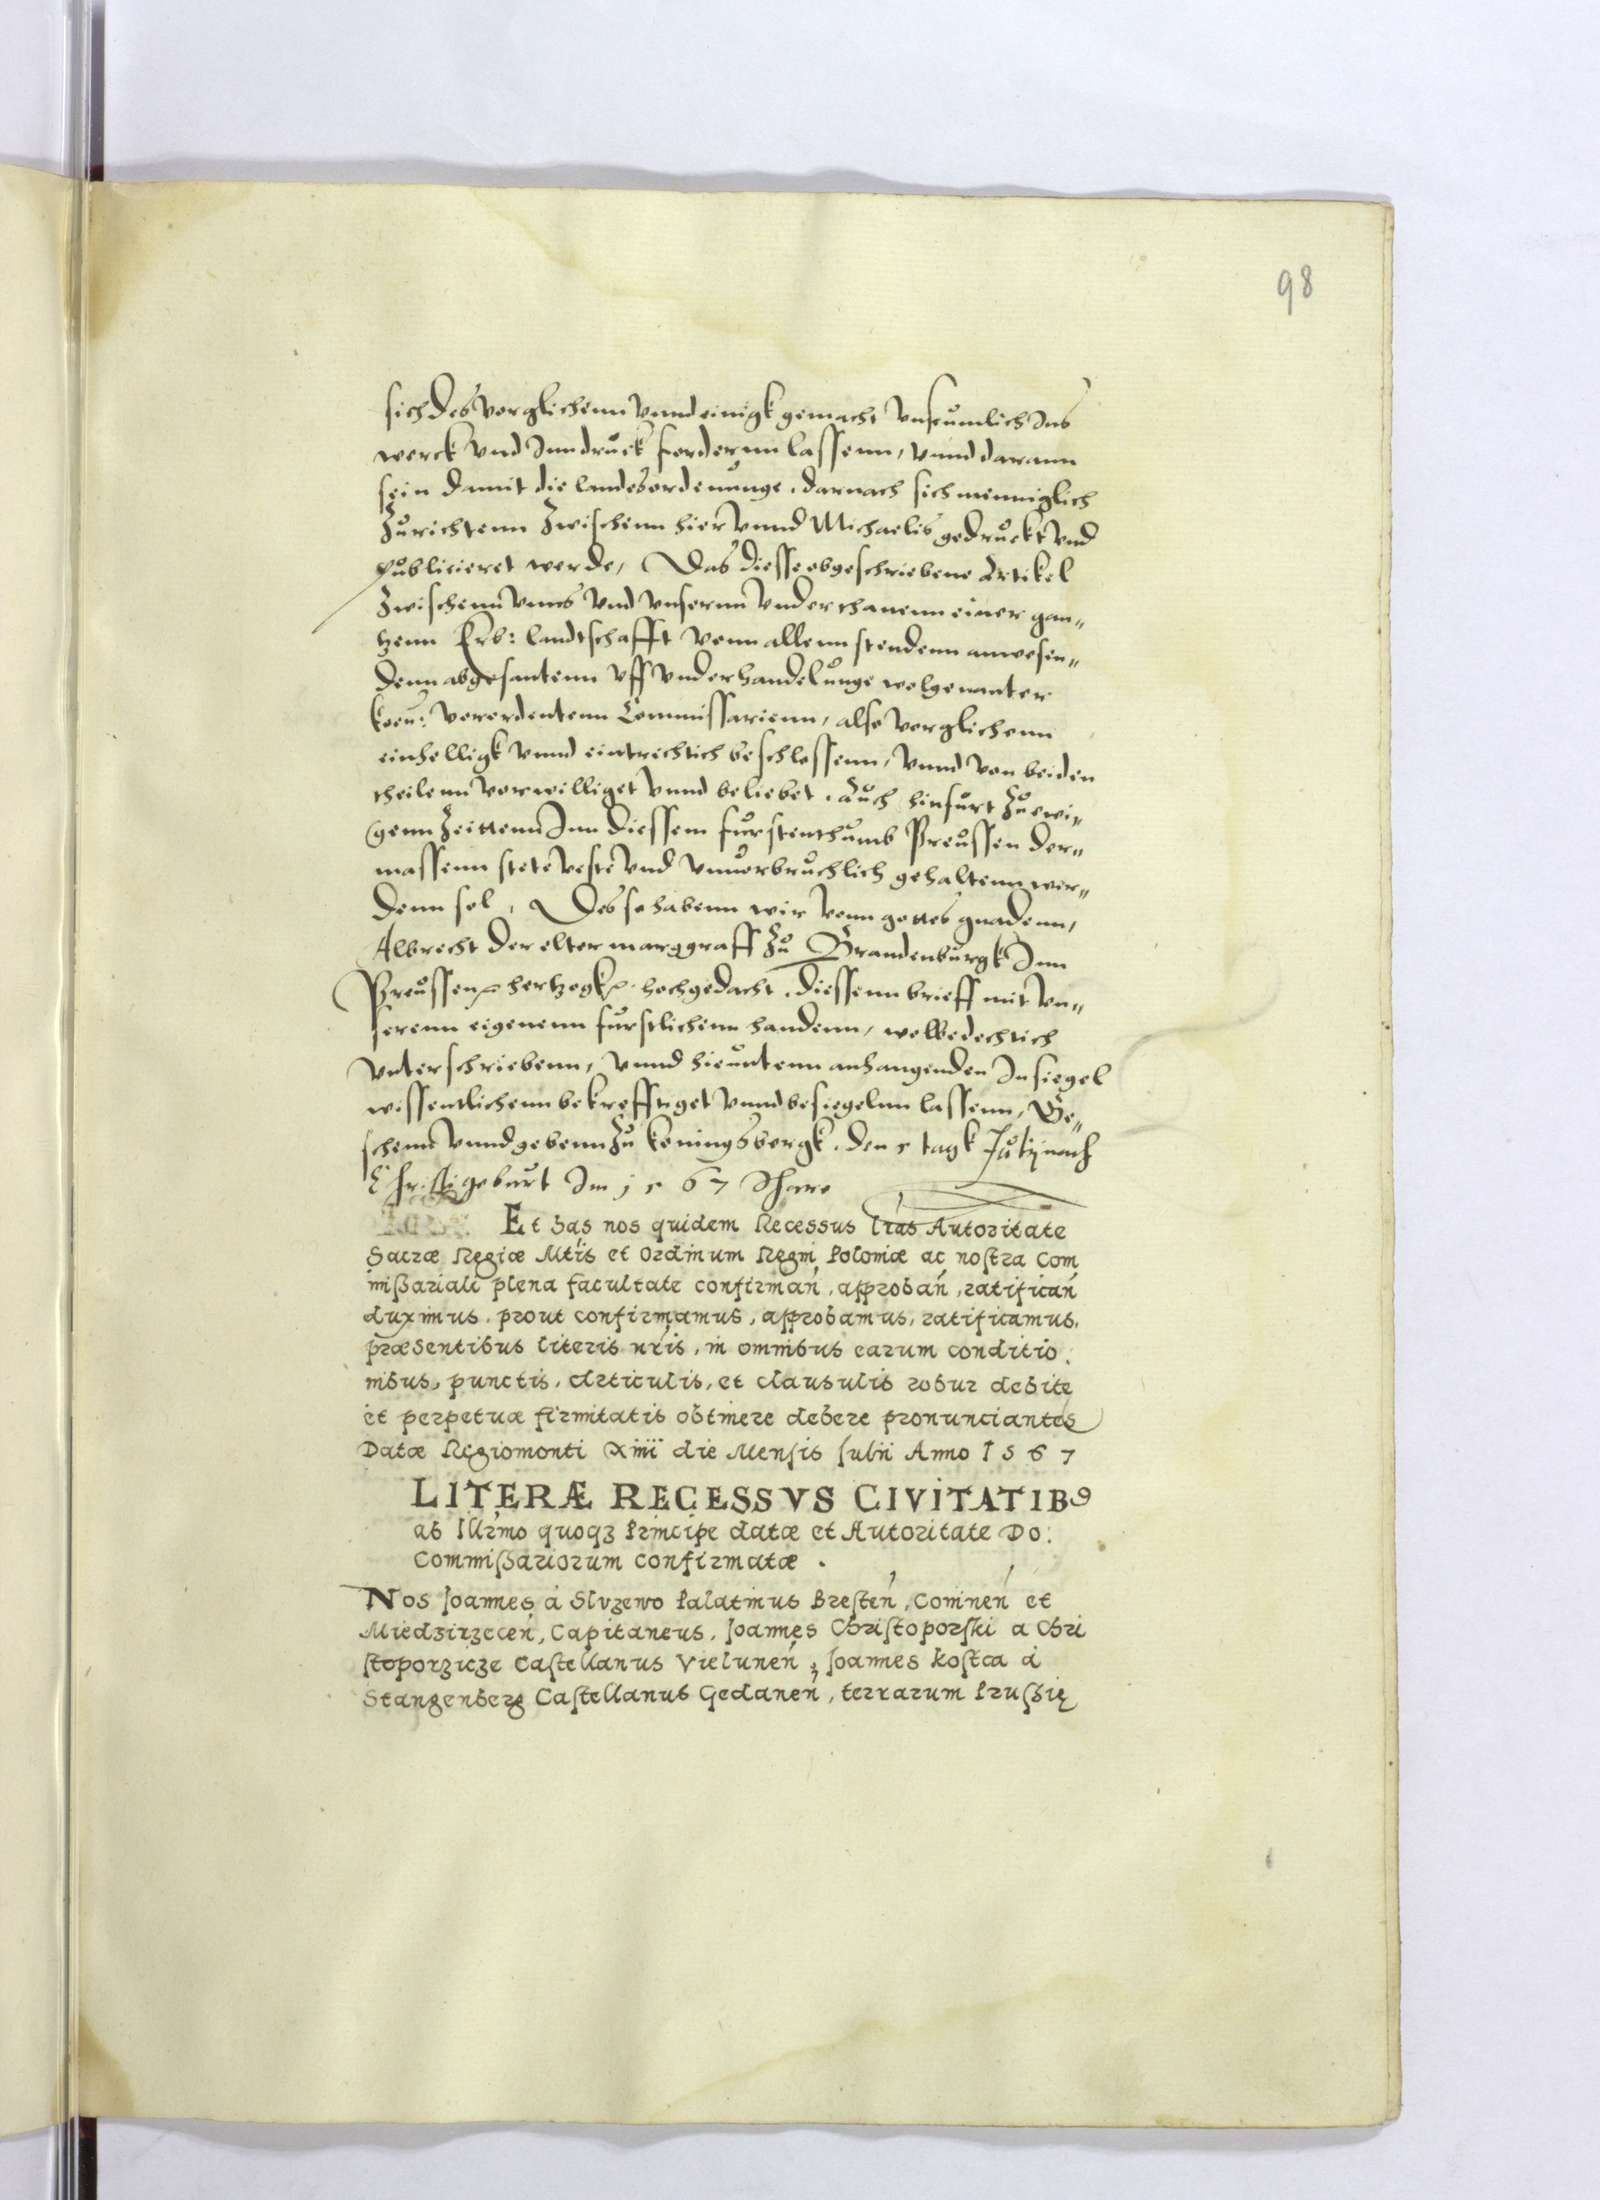 98
sich des vorglichenn vnnd einigk gemacht vnseumlich Ins
werck vnd Inn druck fordernn lassenn, vnnd darann
sein damit die landesordenunge, darnach sich menniglich
Zurichtenn Zwischenn hier vnnd Michaelis gedruckt vnd
publicieret werde, Das diesse obgeschriebene Artikel
Zwischenn vnns vnd vnsernn vnderthanenn einer gan„
tzenn Erb: landtschafft vonn allenn stendenn anwesen„
denn abgesantenn vff vnderhandelunge wolgenanter
koen: verordentenn Commissarienn, also verglichenn
einhelligk vnnd eintrechtich beschlossenn, vnnd von beiden
theilenn vorwilliget vnnd beliebet, Auch hinfurt Zu ewi„
genn Zeittenn Inn diessem furstenthumb Preussen der„
massenn stete veste vnd vnuorbruchlich gehaltenn wer„
denn sol, Des so habenn wir vonn gottes gnadenn,
Albrecht der elter marggraff Zu Brandenburgk Inn
Preussen hertzogk hochgedacht, diessenn brieff mit vn„
serenn eigenenn furstlichenn handenn, wolbedechtich
vnterschriebenn, vnnd hieuntenn anhangenden Insiegel
wissentlichenn bekrefftiget vnnd besiegelnn lassenn, Ge„
schenn vnnd gebenn Zu konigsbergk, den 5 tagk Julij nach
Christi geburt Im 1567 Ihare
Et has nos quidem Recessus lras Autoritate
Sacræ Regiæ Mtis et Ordinum Regni Poloniæ ac nostra Com
mißariali plena facultate confirmań, approbań, ratificań
duximus, prout confirmamus, approbamus, ratificamus,
præsentibus literis nris, in omnibus earum conditio:
nibus, punctis, articulis, et clausulis robur debite
et perpetuæ firmitatis obtinere debere pronunciantes
Datæ Regiomonti Xiiii die Mensis Iulii Anno 1567
LITERÆ RECESSVS CIVITATIB9
ab Illrmo quoqz Principe datæ et Autoritate Do:
Commißariorum confirmatæ.
Nos Ioannes á Sluzewo Palatinus Bresteń, Coninen et
Miedzirzeceń, Capitaneus, Ioannes Christoporski a Chri
stoporzicze Castellanus Vieluneń, Ioannes kostca á
Stangenberg Castellanus Gedaneń, terrarum Prußię